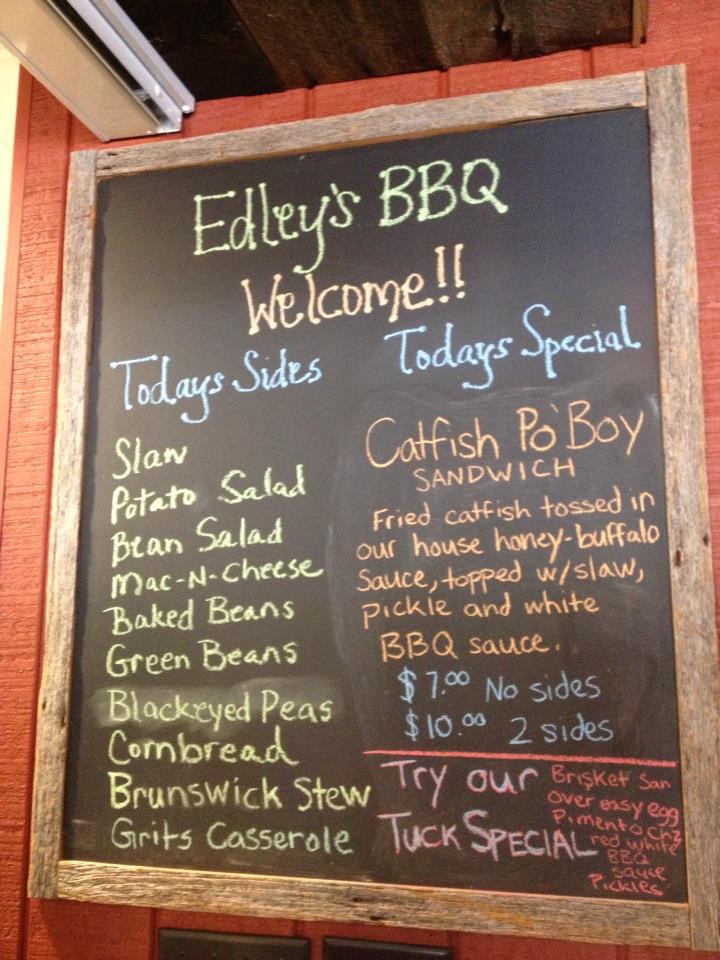 Edley's BBQ
Welcome!!
Todays Sides
Slaw
Potato Salad
Bean Salad
Mac-N-Cheese
Baked Beans
Green Beans
Blackeyed Peas
Cornbread
Brunswick Stew
Grits Casserole
Todays Special
Catfish Po'Boy
SANDWICH
Fried catfish tossed in
our house honey-buffalo
sauce, topped w/slaw,
pickle and white
BBQ sauce.
$7.00 No sides
$10.00 2 sides
Try our
TUCK SPECIAL
Brisket San
over easy egg
Pimento chz
red white
BBQ
sauce
Pickles